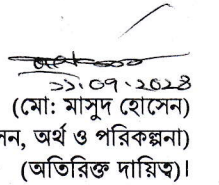 ১১.০৭.২০২৪
(মো: মাসুদ হোসেন)
সন, অর্থ ও পরিকল্পনা)
(অতিরিক্ত দায়িত্ব)।